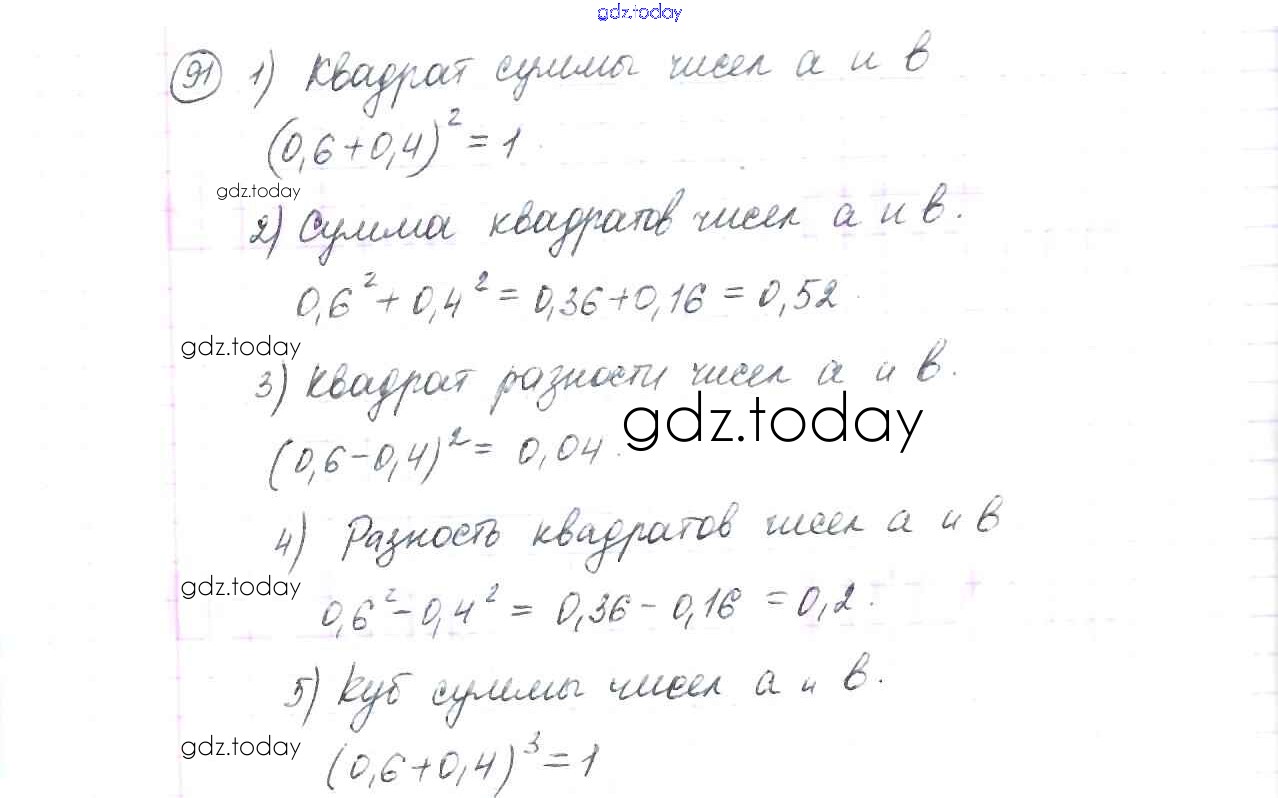 gdz.today
91 1) Квадрат суммы чисел а и в
(0,6+0,4)² = 1
gdz.today
2) Сумма квадратов чисел а и в.
0,6² + 0,4² = 0,36 + 0,16 = 0,52
gdz.today
3) Квадрат разности чисел а и в.
gdz.today
(0,6-0,4)² = 0,04.
4) Разность квадратов чисел а и в
gdz.today
0,6² - 0,4² = 0,36 - 0,16 = 0,2.
5) Куб суммы чисел а и в.
gdz.today
(0,6+0,4)³ = 1